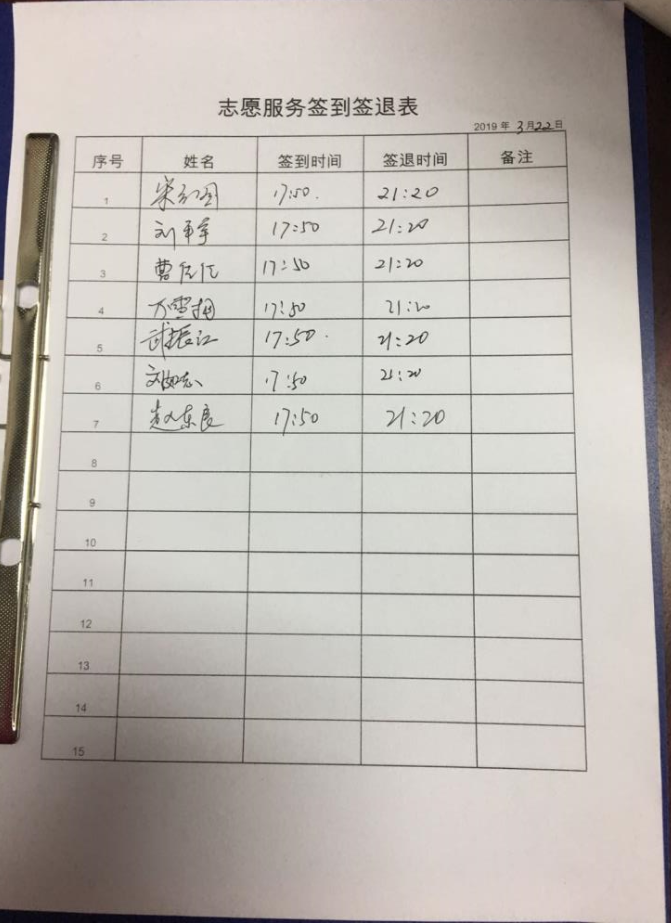 志愿服务签到签退表
2019 年 3 月 22 日
序号 姓名 签到时间 签退时间 备注
1 17:50. 21:20
2 刘 17:50 21:20
3 曹 17:50 21:20
4 17:50 21:20
5 武振江 17:50. 21:20
6 17:50 21:20
7 赵东良 17:50 21:20
8
9
10
11
12
13
14
15